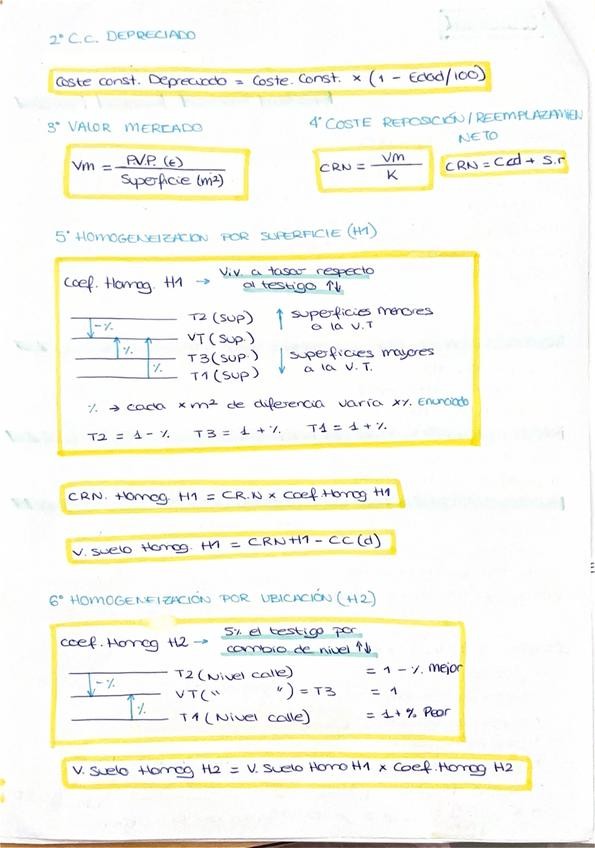 2° C.C. DEPRECIADO
Coste const. Depreciado = Coste. Const. × (1 - Edad/100)
3° VALOR MERCADO
4° COSTE REPOSICIÓN/REEMPLAZAMIEN
NETO
Vm = P.V.P. (€) / Superficie (m²)
CRN = Vm / K
CRN = Ccd + S.r
5° HOMOGENEIZACION POR SUPERFICIE (H1)
Coef. Homog. H1 → Viv. a tasar respecto
al testigo ↑↓
T2 (SUP)
VT (SUP.)
T3 (SUP.)
T1 (SUP)
- %
%
%
↑ superficies menores
a la V.T
↓ superficies mayores
a la V.T.
% → cada × m² de diferencia varía x% Enunciado
T2 = 1 - % T3 = 1 + % T1 = 1 + %
CRN. Homog. H1 = CR.N × Coef. Homog H1
V. Suelo Homog. H1 = CRN H1 - CC(d)
6° HOMOGENEIZACIÓN POR UBICACIÓN (H2)
coef. Homog H2 → 5% el testigo por
cambio de nivel ↑↓
T2 (Nivel calle) = 1 - % mejor
- %
VT (" ") = T3 = 1
%
T1 (Nivel calle) = 1 + % Peor
V. Suelo Homog H2 = V. Suelo Homo H1 × Coef. Homog H2